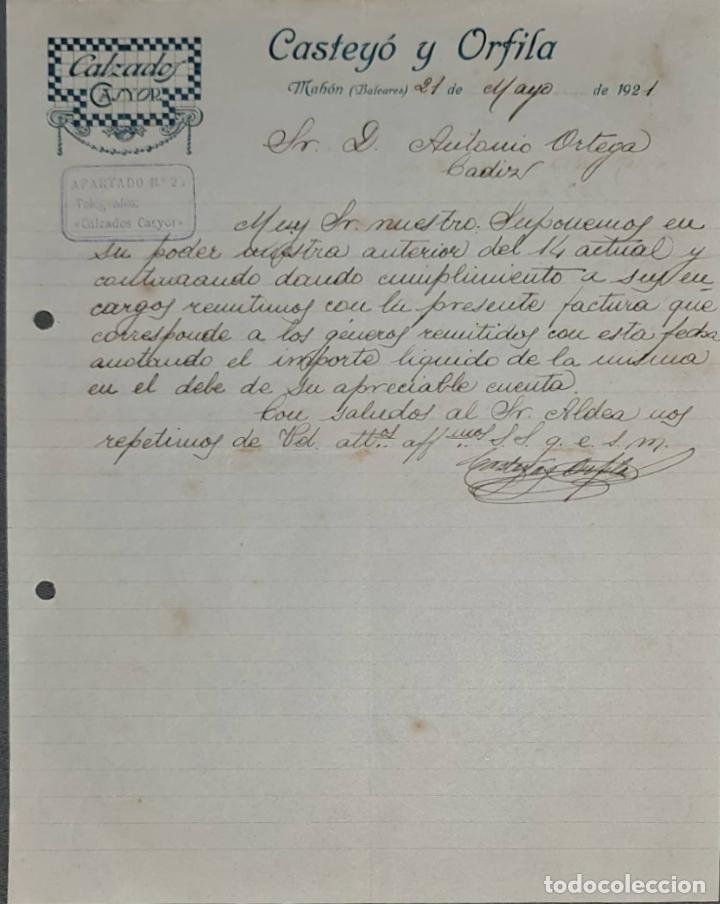 Calzados
CASYOR
Casteyó y Orfila
Mahón (Baleares) 21 de Mayo de 1921
Sr. D. Antonio Ortega
Cadiz
APARTADO N.º 25
Telegramas:
«Calzados Casyor»
Muy Sr. nuestro: Suponemos en
su poder nuestra anterior del 14 actual y
continuando dando cumplimiento a sus en
cargos remitimos con la presente factura que
corresponde a los géneros remitidos con esta fecha
anotando el importe líquido de la misma
en el debe de su apreciable cuenta.
Con saludos al Sr. Aldea nos
repetimos de Vd. att.os aff.mos S. S. q. e. s. m.
Casteyó y Orfila
todocoleccion
todocoleccion.net